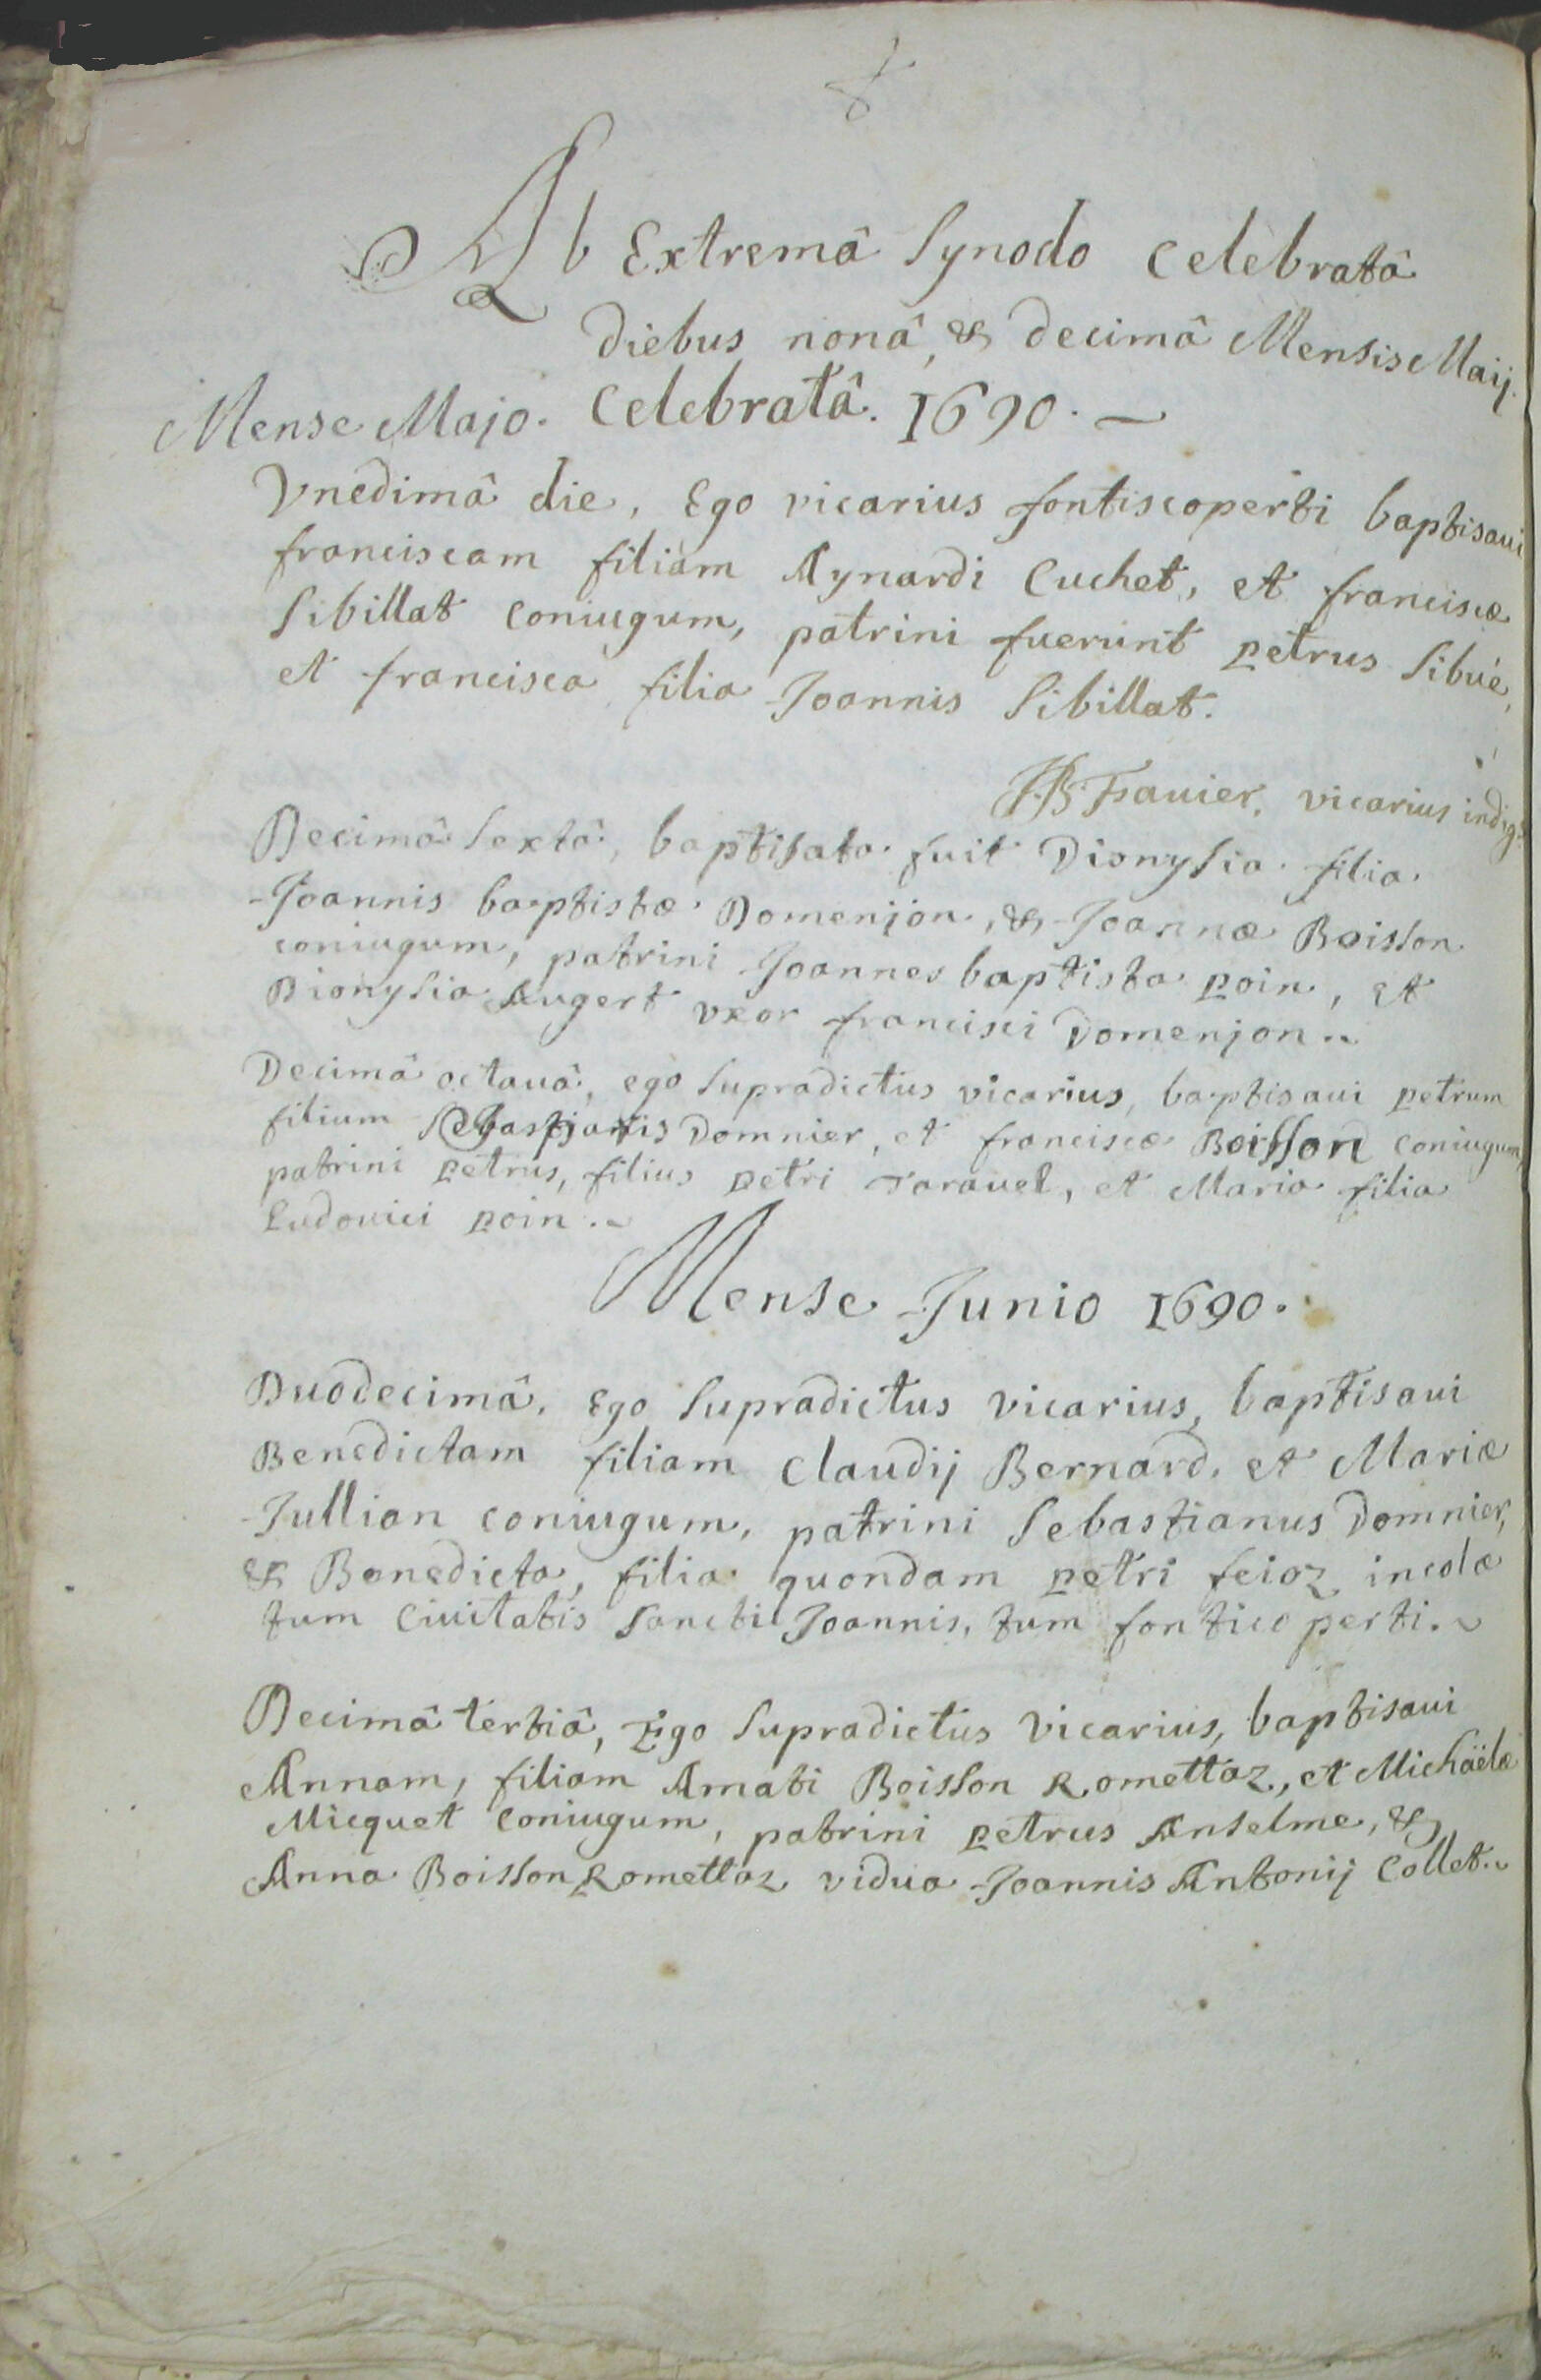 Ab Extremâ Synodo Celebratâ
diebus nonâ, & decimâ Mensis Maij.
Mense Majo. Celebratâ. 1690. —
Vnedimâ die, Ego vicarius fontiscoperti baptisaui
franciscam filiam Aynardi Cuchet, et franciscæ
Sibillat coniugum, patrini fuerunt petrus Sibué,
et francisca filia Joannis Sibillat.
vicarius indig.
Decimâ Sextâ, baptisata fuit Dionysia filia
Joannis baptistæ Domenjon, & Joannæ Boisson
coniugum, patrini Joannes baptista poin, et
Dionysia Augert vxor francisci Domenjon.
Decimâ octauâ, ego Supradictus vicarius, baptisaui petrum
filium Domnier, et franciscæ Boisson coniugum,
patrini petrus, filius petri Tarauel, et Maria filia
Ludouici poin.
Mense Junio 1690.
Duodecimâ, Ego Supradictus vicarius, baptisaui
Benedictam filiam Claudij Bernard, et Mariæ
Jullian coniugum, patrini Sebastianus Domnier,
& Benedicta, filia quondam petri feioz incolæ
tum Ciuitatis Sancti Joannis, tum fonticoperti.
Decimâ tertiâ, Ego Supradictus Vicarius, baptisaui
Annam, filiam Amati Boisson Romettaz, et Michaëlæ
Micquet Coniugum, patrini petrus Anselme, &
Anna Boisson Romettaz vidua Joannis Antonij Collet.